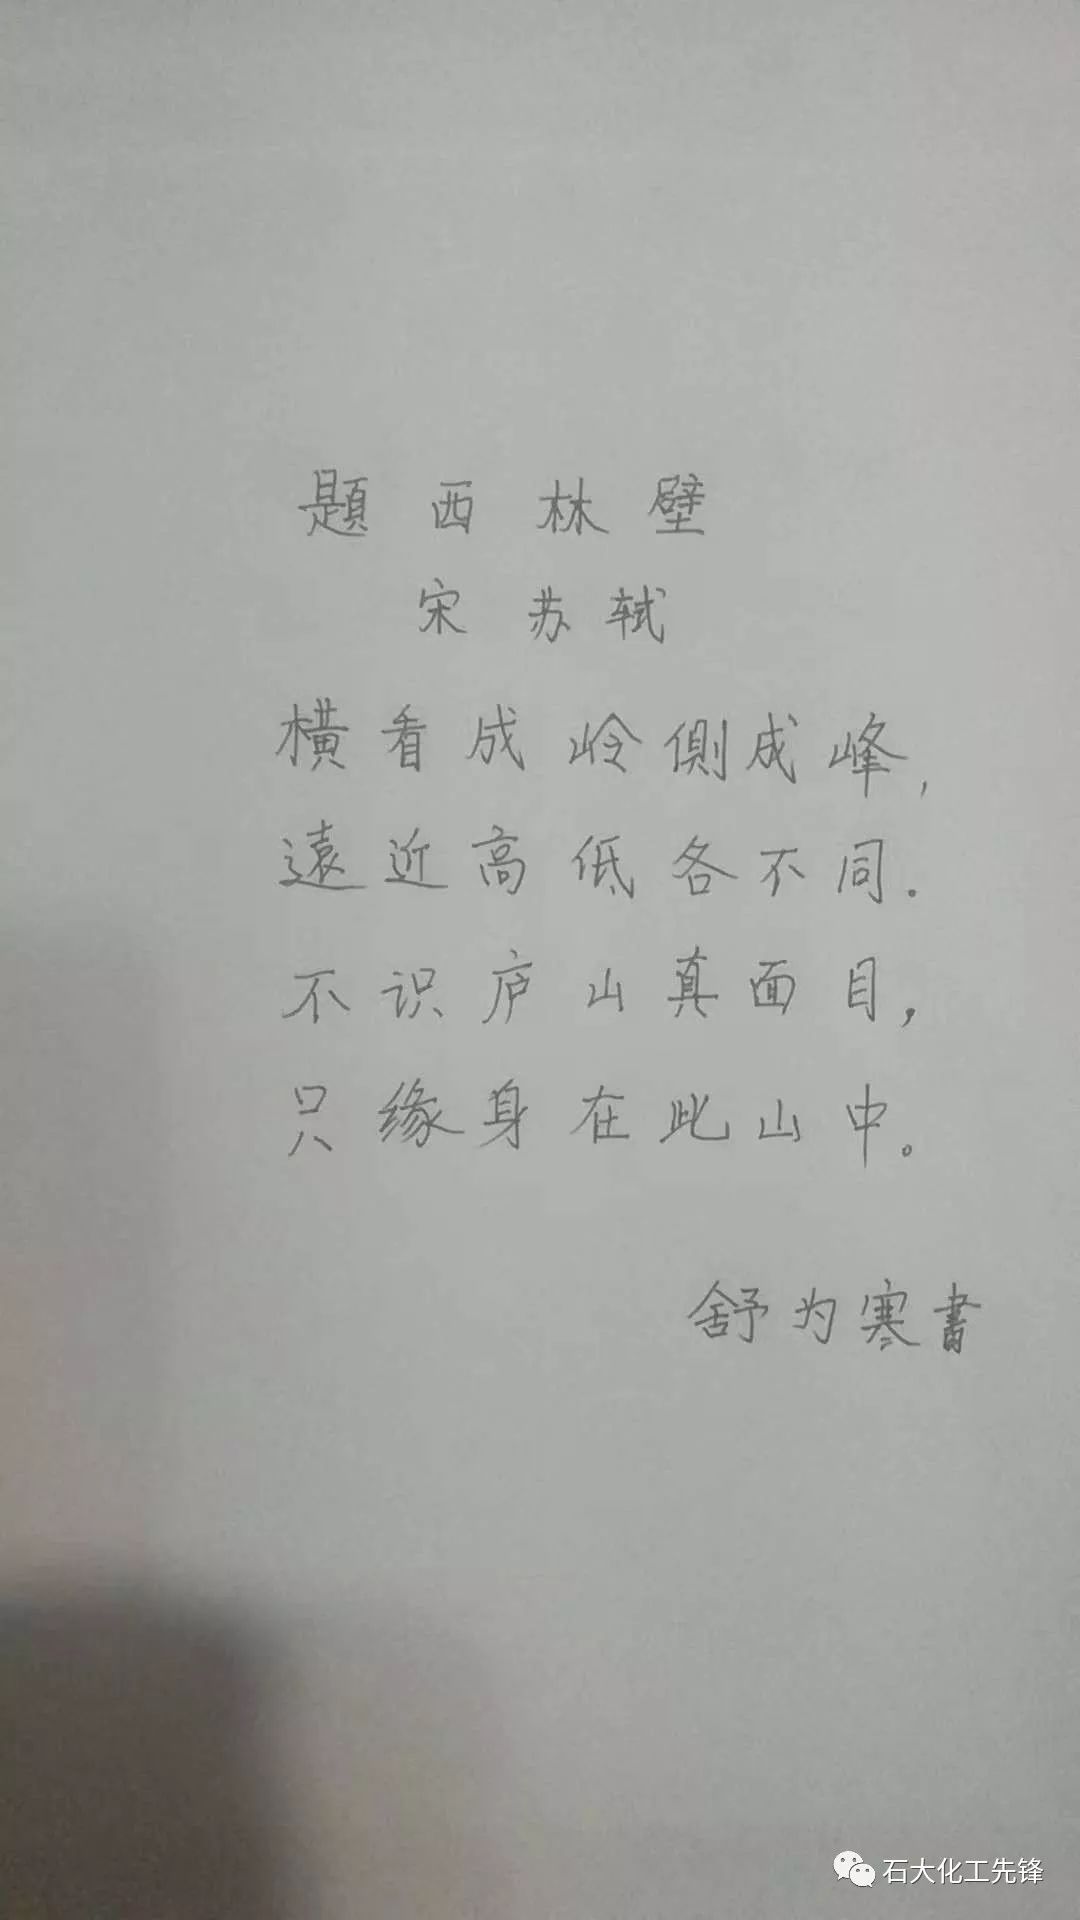 題西林壁
宋 苏轼
横看成岭側成峰，
遠近高低各不同.
不识庐山真面目，
只缘身在此山中。
舒为寒書
石大化工先锋